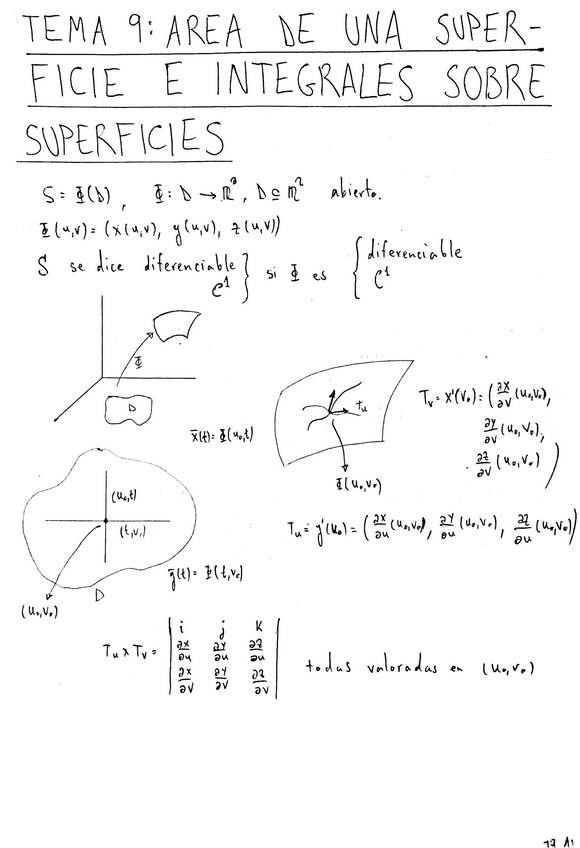 TEMA 9: AREA DE UNA SUPER-
FICIE E INTEGRALES SOBRE
SUPERFICIES
S = Φ(D), Φ: D → ℝ³, D ⊆ ℝ² abierto.
Φ(u,v) = (x(u,v), y(u,v), z(u,v))
S se dice diferenciable } si Φ es { diferenciable
C¹ } { C¹
Φ
D
x̄(t) = Φ(u₀,t)
Tu
Φ(u₀,v₀)
Tv = x'(v₀) = (∂x/∂v (u₀,v₀),
∂y/∂v (u₀,v₀),
∂z/∂v (u₀,v₀))
(u₀,t)
(t,v₀)
D
(u₀,v₀)
ȳ(t) = Φ(t,v₀)
Tu = y'(u₀) = (∂x/∂u (u₀,v₀), ∂y/∂u (u₀,v₀), ∂z/∂u (u₀,v₀))
i j k
Tu × Tv = | ∂x/∂u ∂y/∂u ∂z/∂u |
∂x/∂v ∂y/∂v ∂z/∂v
todas valoradas en (u₀,v₀)